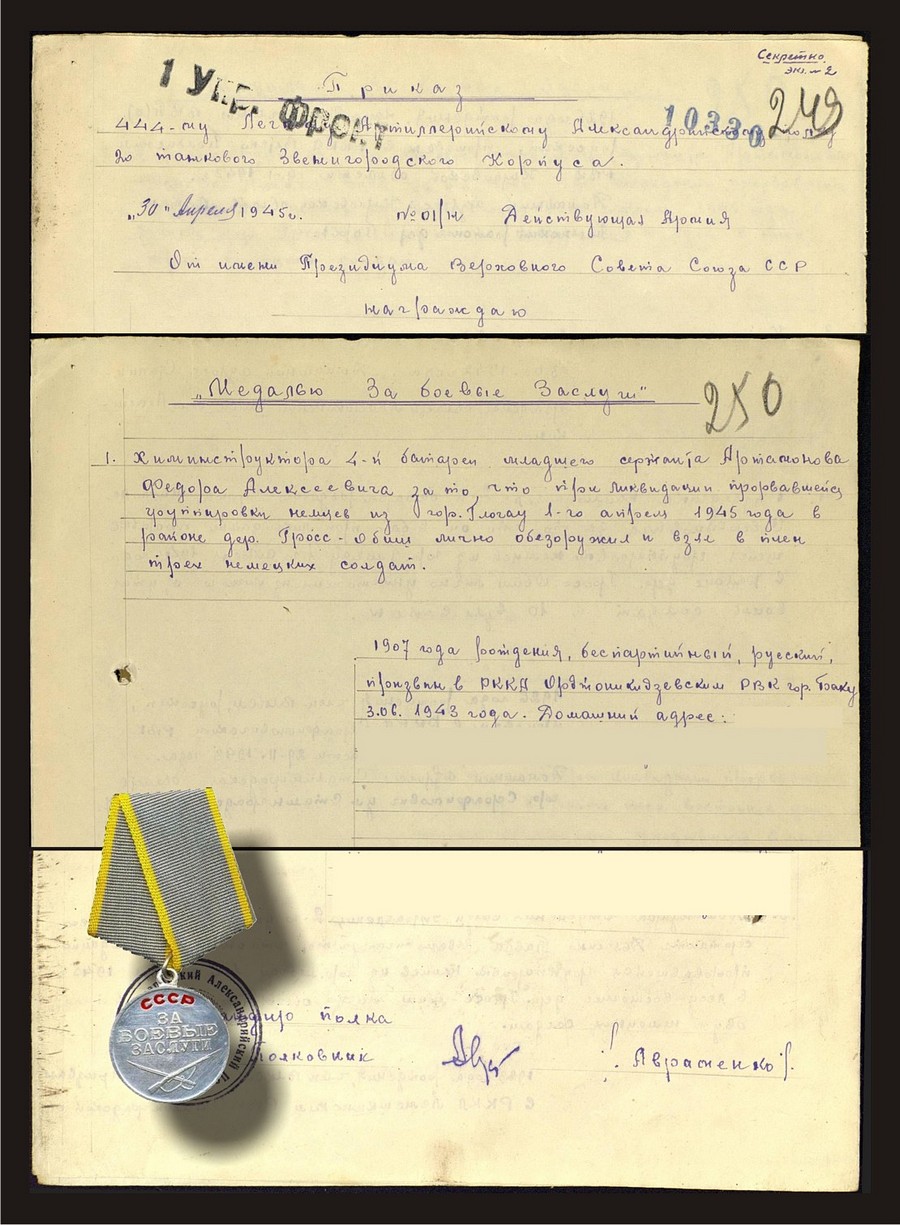 Секретно.
экз. № 2
1 УКР. ФРОНТ
Приказ
10330
249
444-му Артиллерийскому Александрийскому полку
20 танкового Звенигородского Корпуса.
„30" Апреля 1945г. №01/н Действующая Армия
От имени Президиума Верховного Совета Союза ССР
награждаю
„Медалью За боевые Заслуги"
250
1. Химинструктора 4-й батареи младшего сержанта Артамонова
Федора Алексеевича за то, что при ликвидации прорвавшейся
группировки немцев из гор. Глогау 1-го апреля 1945 года в
районе дер. Гросс-Обиш лично обезоружил и взял в плен
трех немецких солдат.
1907 года рождения, беспартийный, русский,
призван в РККА Орджоникидзевским РВК гор. Баку
3.06. 1943 года. Домашний адрес:
СССР
ЗА
БОЕВЫЕ
ЗАСЛУГИ
Александрийский
полка
/Авраменко/.